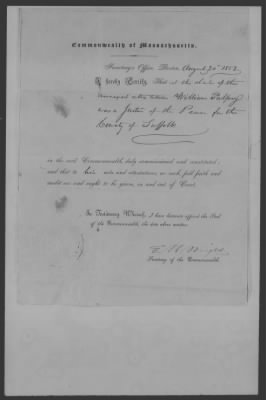 Commonwealth of Massachusetts.
Secretary's Office, Boston, August 30th 1852.
I hereby Certify, That at the date of the
annexed William Palfrey
was a Justice of the Peace for the
County of Suffolk
in the said Commonwealth, duly commissioned and constituted;
and that to his acts and attestations, as such, full faith and
credit are and ought to be given, in and out of Court.
In Testimony Whereof, I have hereunto affixed the Seal
of the Commonwealth, the date above written.
Wright
Secretary of the Commonwealth.